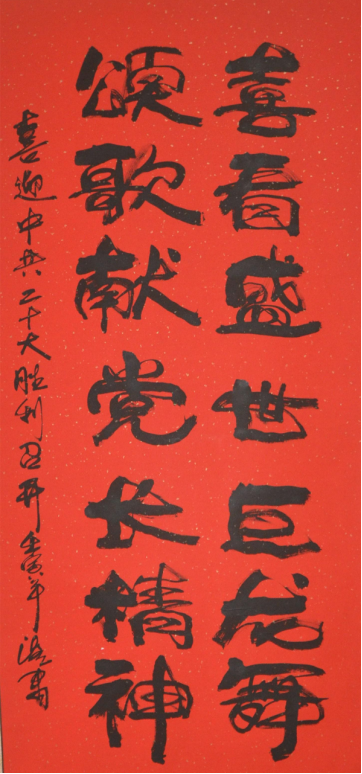 喜看盛世巨龙舞
颂歌献党长精神
喜迎中共二十大胜利召开 壬寅年 书